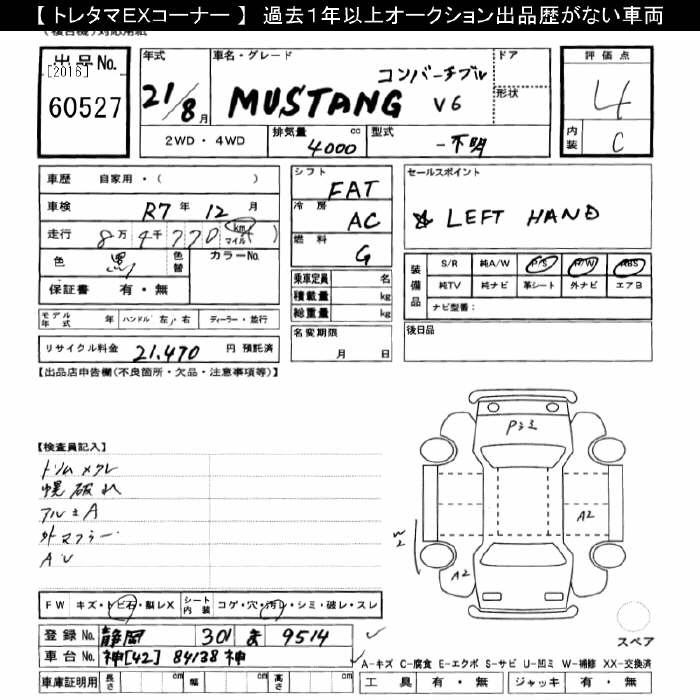 【トレタマEXコーナー】 過去1年以上オークション出品歴がない車両
出品No.
[2016]
60527
年式 21/8月
車名・グレード MUSTANG コンバーチブル V6
ドア
形状
2WD・4WD
排気量 4000 cc
型式 -不明
評価点 4
内装 C
車歴 自家用・( )
車検 R7年 12月
走行 8万4千770 km マイル ( )
色 黒 色替 カラーNo.
保証書 有・無
モデル年式 年 ハンドル 左・右 ディーラー・並行
リサイクル料金 21,470 円 預託済
シフト FAT
冷房 AC
燃料 G
乗車定員 名
積載量 kg
総重量 kg
名変期限
月 日
セールスポイント
☆ LEFT HAND
装備品
S/R 純A/W P/S P/W ABS
純TV 純ナビ 革シート 外ナビ エアB
ナビ型番:
後日品
【出品店申告欄(不良箇所・欠品・注意事項等)】
【検査員記入】
トリムメクレ
幌破れ
アルミA
外マフラー
AU
Pシミ
A2
W2
A2
スペア
FW キズ・トビ石・駆レX
シート内装 コゲ・穴・汚レ・シミ・破レ・スレ
登録No. 静岡 301 ま 9514
車台No. 神[42] 84138 神
車庫証明用 長さ cm 幅 cm 高さ cm
A-キズ C-腐食 E-エクボ S-サビ U-凹ミ W-補修 XX-交換済
工具 有・無 ジャッキ 有・無